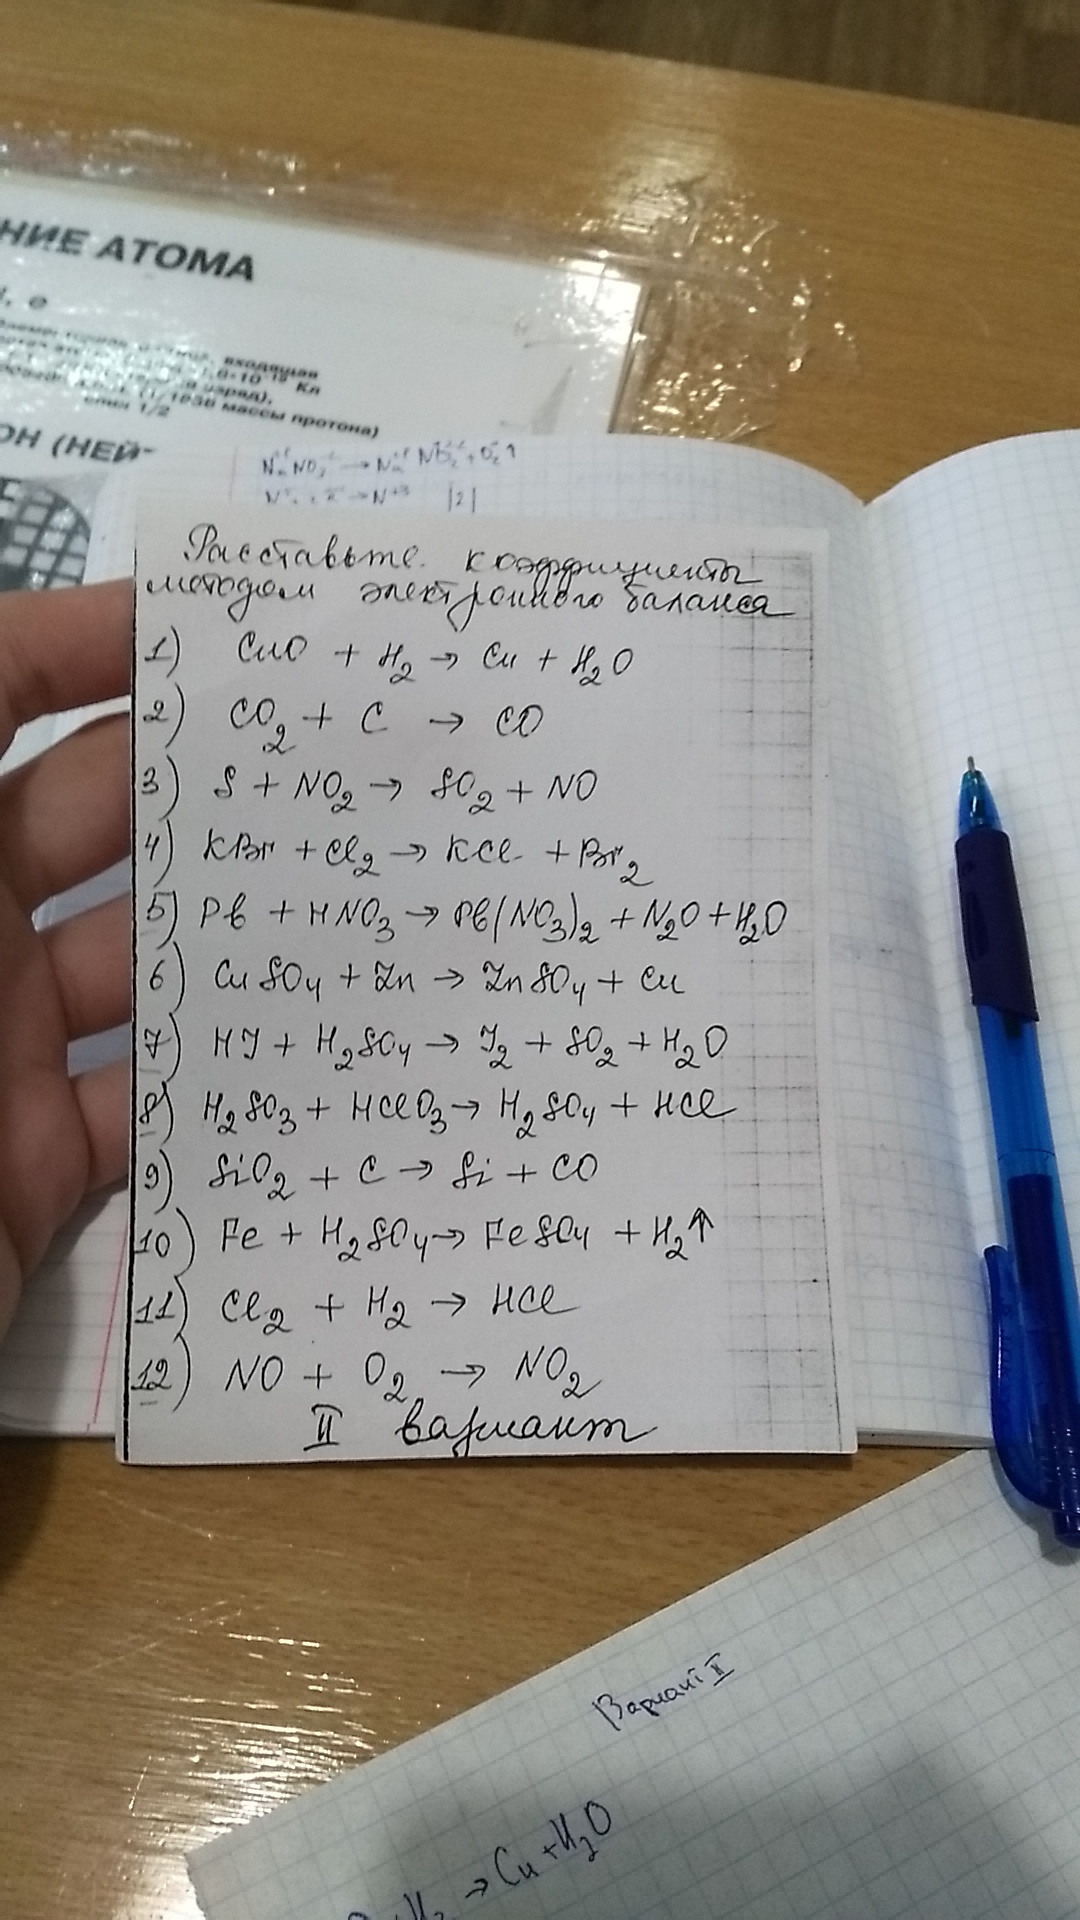 НИЕ АТОМА
входящая
Кл
массы протона)
спин 1/2
ОН (НЕЙ-
Расставьте коэффициенты
методом электронного баланса
1) CuO + H₂ → Cu + H₂O
2) CO₂ + C → CO
3) S + NO₂ → SO₂ + NO
4) KBr + Cl₂ → KCl + Br₂
5) Pb + HNO₃ → Pb(NO₃)₂ + N₂O + H₂O
6) CuSO₄ + Zn → ZnSO₄ + Cu
7) HJ + H₂SO₄ → J₂ + SO₂ + H₂O
8) H₂SO₃ + HClO₃ → H₂SO₄ + HCl
9) SiO₂ + C → Si + CO
10) Fe + H₂SO₄ → FeSO₄ + H₂↑
11) Cl₂ + H₂ → HCl
12) NO + O₂ → NO₂
II вариант
Вариант II
→ Cu + H₂O